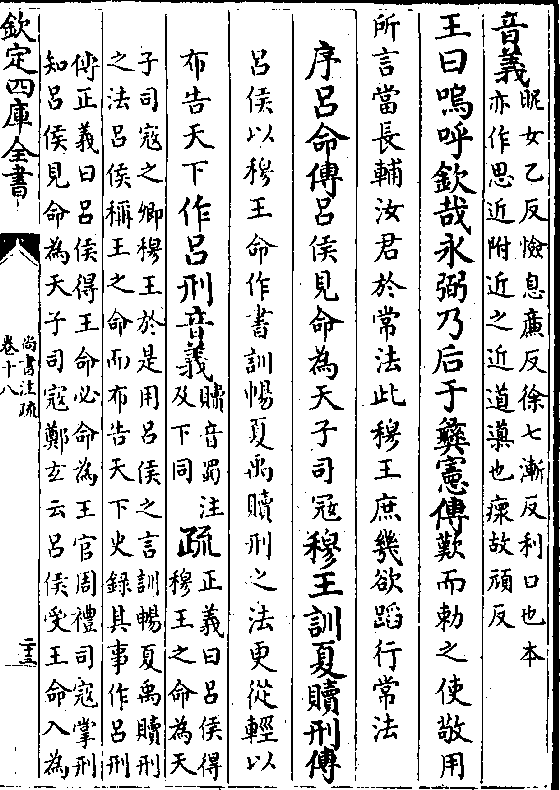 音義昵女乙反憸息廉反徐七漸反利口也本
亦作思近附近之近道導也瘝故頑反
王曰嗚呼欽哉永弼乃后于彝憲傳歎而勅之使敬用
所言當長輔汝君於常法此穆王庶幾欲蹈行常法
序呂命傳呂侯見命為天子司冦穆王訓夏贖刑傳
呂侯以穆王命作書訓暢夏禹贖刑之法更從輕以
布告天下作呂刑音義贖音蜀注
及下同
疏正義曰呂侯得
穆王之命為天
子司寇之卿穆王於是用呂侯之言訓暢夏禹贖刑
之法呂侯稱王之命而布告天下史錄其事作呂刑
傳正義曰呂侯得王命必命為王官周禮司寇掌刑
知呂侯見命為天子司寇鄭𤣥云呂侯受王命入為
欽定四庫全書
尚書注疏
卷十八
二十三